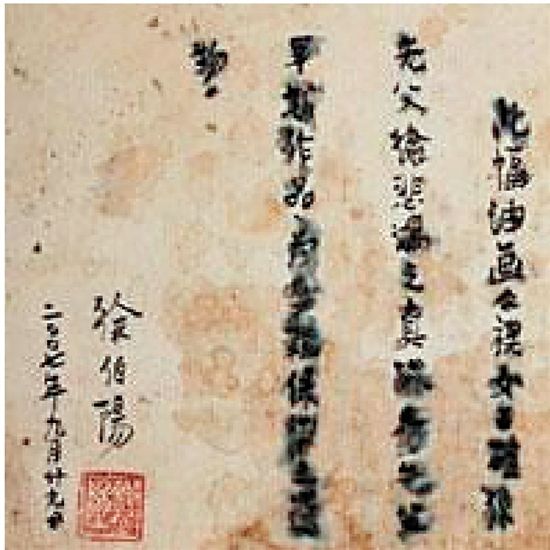 此幅油画《裸女》确系
先父徐悲鸿之真迹
早期作品为保留之遗
物。
徐伯阳
二〇〇七年九月廿九日